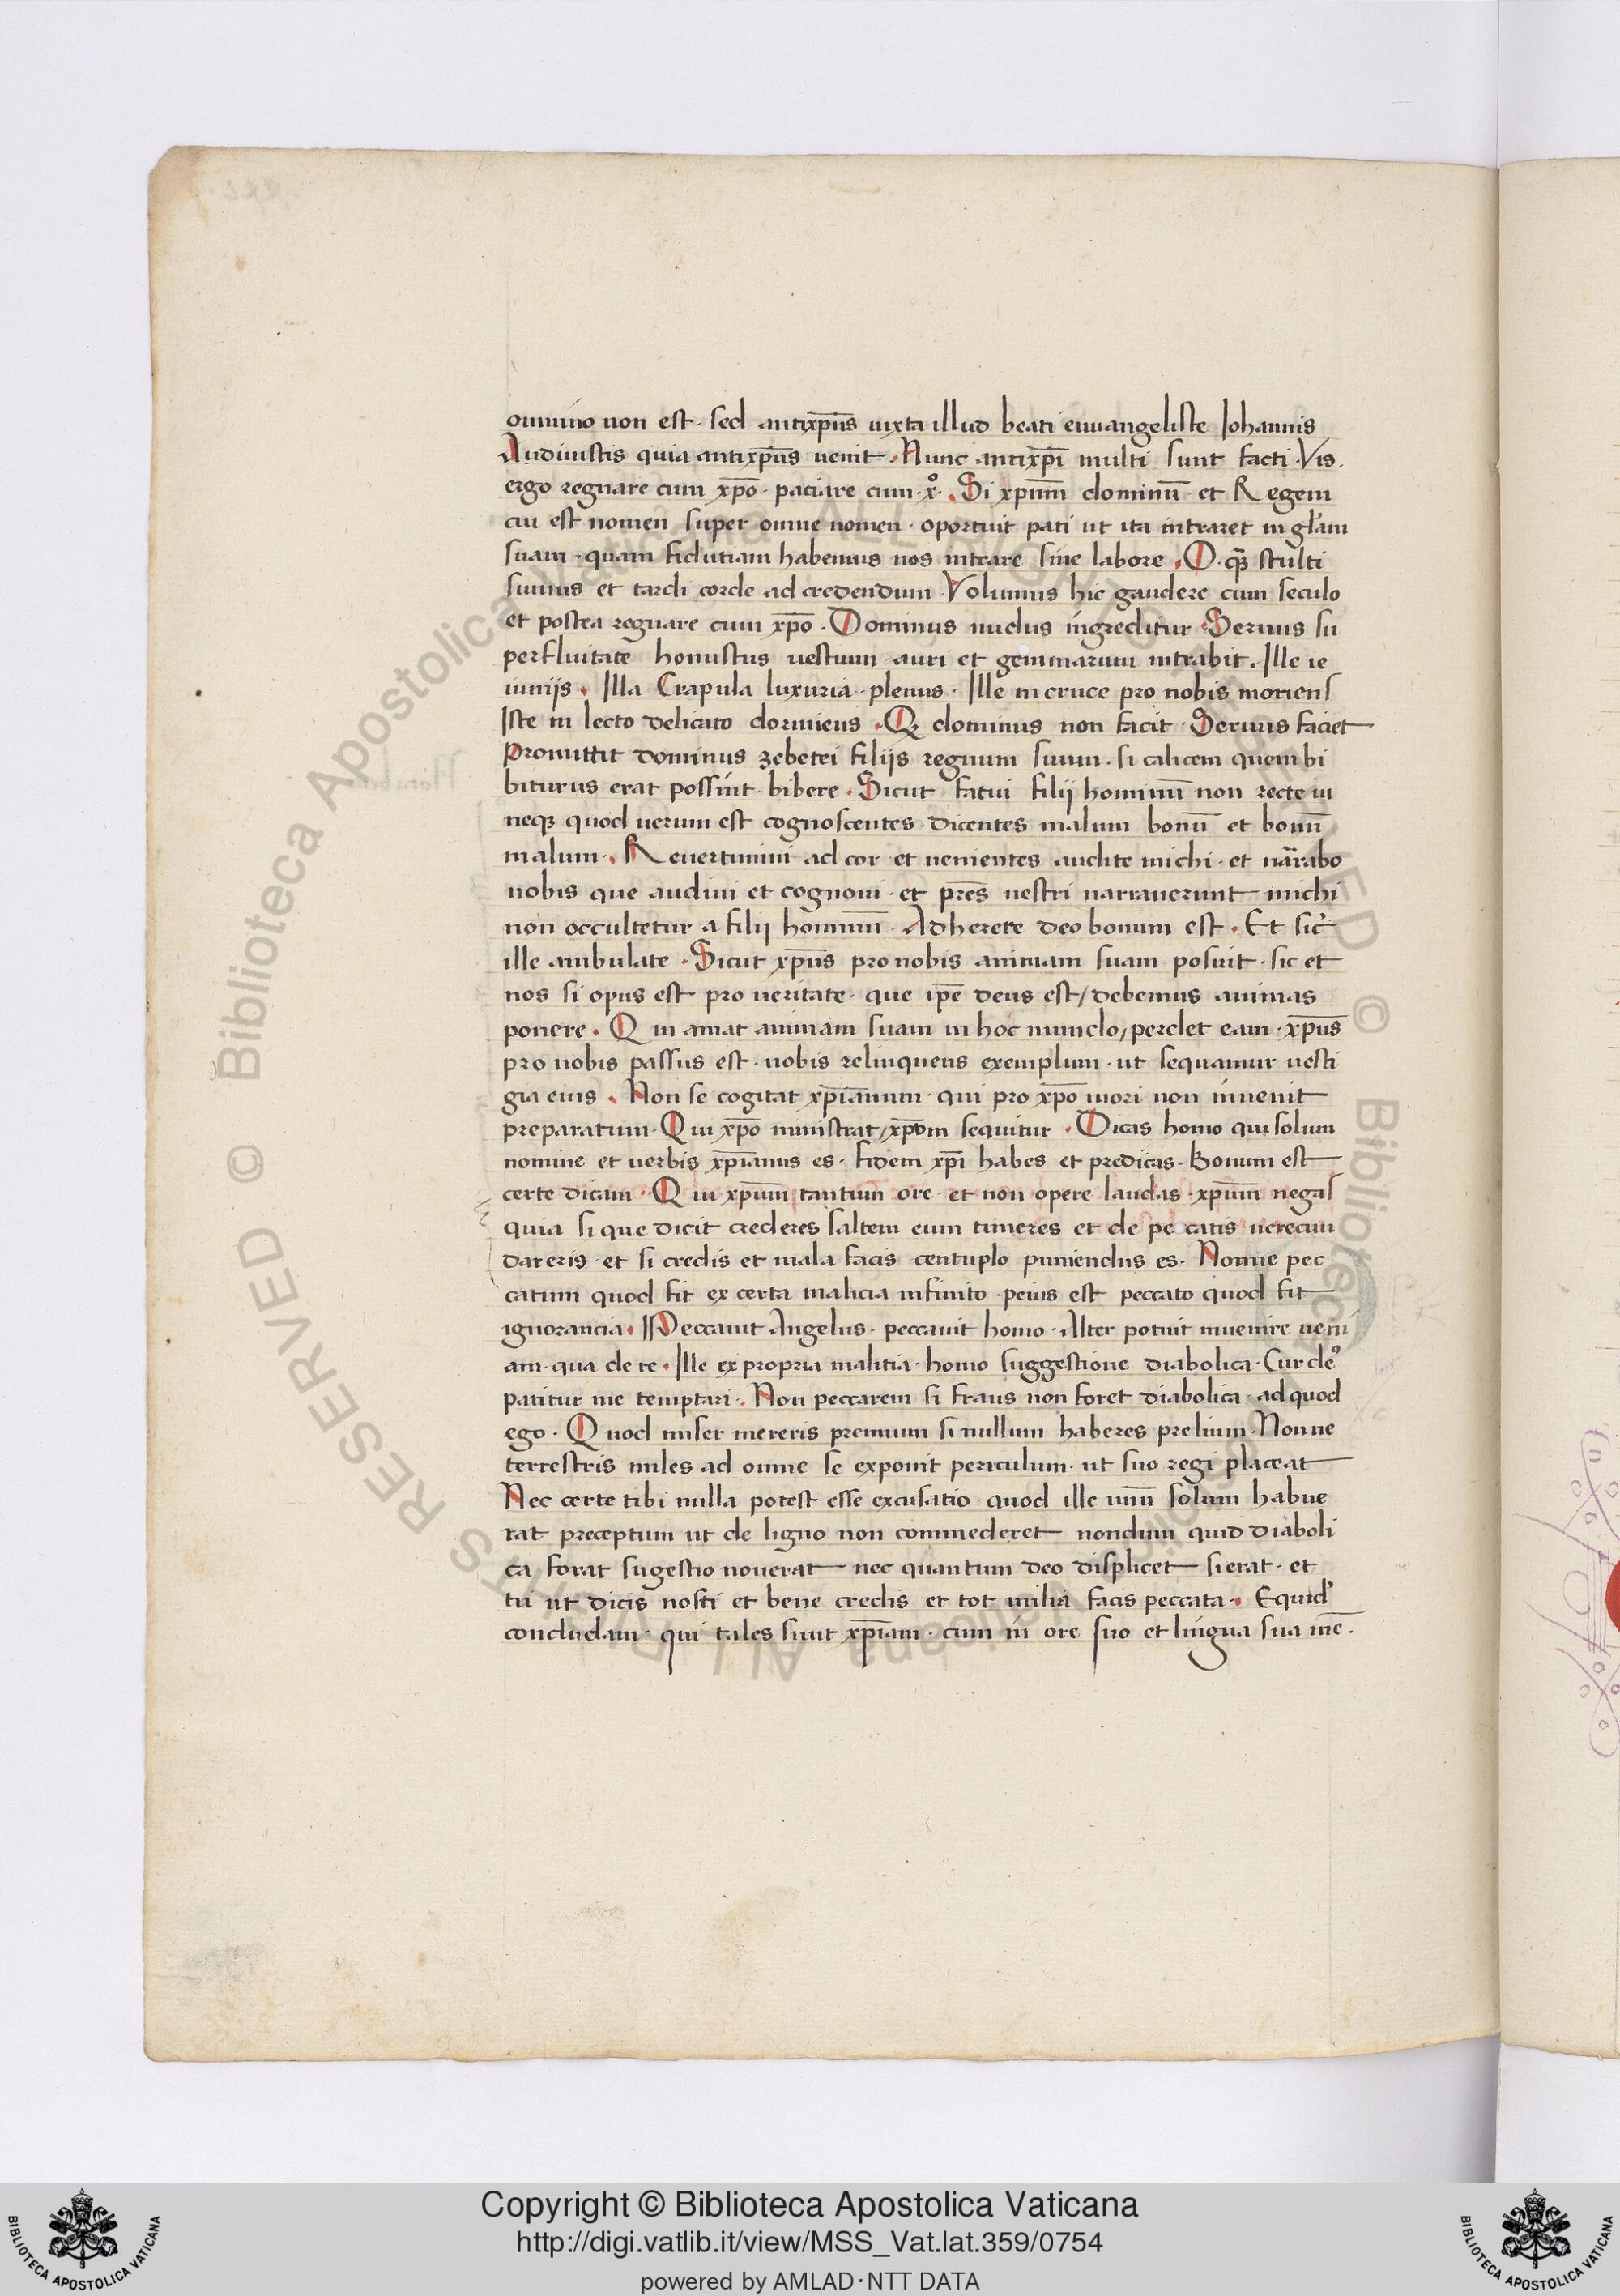 omnino non est · sed antixp̅us iuxta illud beati euuangeliste Iohannis
Audiuistis quia antixp̅us uenit · Nunc antixp̅i multi sunt facti · Vis
ergo regnare cum xp̅o · paciare cum · xº · Si xp̅um dominū et Regem
cui est nomen super omne nomen · oportuit pati ut ita intraret in gl̅am
suam · quam fidutiam habemus nos intrare sine labore · O · qȝ stulti
sumus et tardi corde ad credendum · Volumus hic gaudere cum seculo
et postea regnare cum xp̅o · Dominus nudus ingreditur · Seruus su
perfluitate honustus uestium auri et gemmarum intrabit · Ille ie
iunijs · Illa Crapula luxuria · plenus · Ille in cruce pro nobis moriens
Iste in lecto delicato dormiens · Qȝ dominus non facit · Seruus faciet
Promittit dominus zebetei filijs regnum suum · si calicem quem bi
biturus erat possint bibere · Sicut fatui filij hominū non recte iu
neqȝ quod uerum est cognoscentes · dicentes malum bonū et bonū
malum · Reuertimini ad cor et uenientes audite michi · et nārabo
uobis que audiui et cognoui · et pr̅es uestri narrauerunt michi
non occultetur a filij hominū · Adherere deo bonum est · Et sic̉
ille ambulate · Sicut xp̅us pro nobis animam suam posuit · sic et
nos si opus est pro ueritate · que ip̅e deus est / debemus animas
ponere · Qui amat animam suam in hoc mundo / perdet eam · xp̅us
pro nobis passus est · nobis relinquens exemplum · ut sequamur uesti
gia eius · Non se cogitat xp̅ianum · qui pro xp̅o mori non inuenit
preparatum · Qui xp̅o ministrat / xp̅om sequitur · Dicas homo qui solum
nomine et uerbis xp̅ianus es · fidem xp̅i habes et predicas · Bonum est
certe dicam · Qui xp̅um tantum ore · et non opere laudas · xp̅um negas
quia si que dicit crederes saltem eum timeres et de pe catis uerecun
dareris · et si credis et mala facis centuplo puniendus es · Nonne pec
catum quod fit ex certa malicia infinito · peius est peccato quod fit
ignorancia · Peccauit Angelus · peccauit homo · Alter potuit inuenire ueni
am · qua de re · Ille ex propria malitia · homo suggestione diabolica · Cur deº
patitur me temptari · Non peccarem si fraus non foret diabolica · ad quod
ego · Quod miser mereris premium si nullum haberes prelium · Nonne
terrestris miles ad omne se exponit periculum · ut suo regi placeat
Nec certe tibi nulla potest esse excusatio · quod ille unū solum habue
rat preceptum ut de ligno non commederet nondum quid diaboli
ca forat sugestio nouerat nec quantum deo displicet sierat · et
tu ut dicis nosti et bene credis et tot milia facis peccata · Equid̉
concludam · qui tales sunt xp̅iam · cum in ore suo et lingua sua me̅ ·
Copyright © Biblioteca Apostolica Vaticana
http://digi.vatlib.it/view/MSS_Vat.lat.359/0754
powered by AMLAD · NTT DATA
BIBLIOTECA APOSTOLICA VATICANA
BIBLIOTECA APOSTOLICA VATICANA